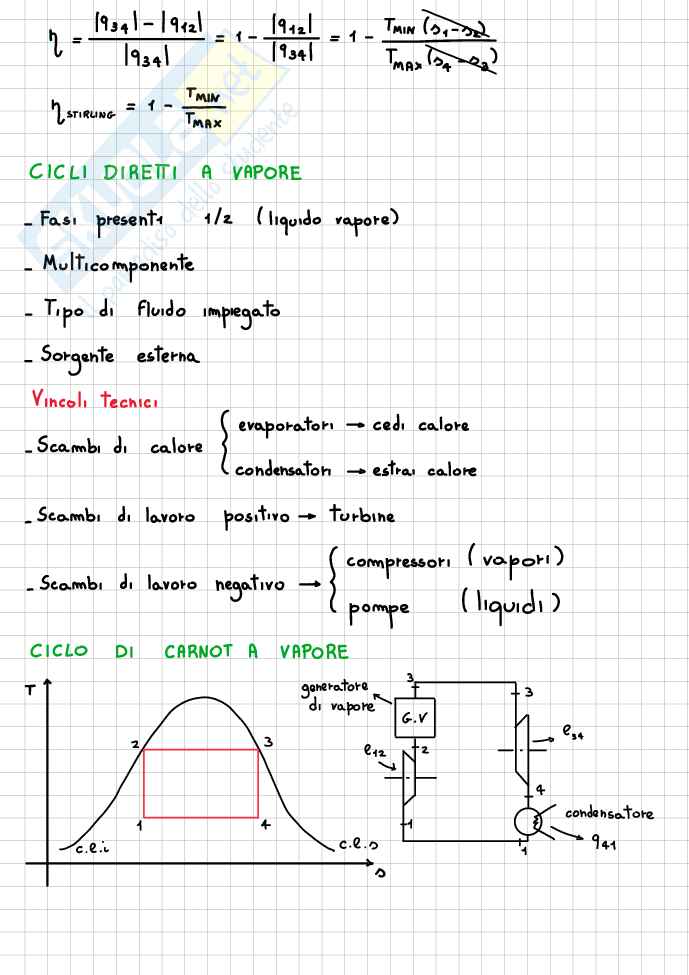 η = |q34| - |q12| / |q34| = 1 - |q12| / |q34| = 1 - TMIN (s1-s2) / TMAX (s4-s3)
ηSTIRLING = 1 - TMIN / TMAX
CICLI DIRETTI A VAPORE
- Fasi presenti 1/2 (liquido vapore)
- Multicomponente
- Tipo di fluido impiegato
- Sorgente esterna
Vincoli tecnici
- Scambi di calore { evaporatori → cedi calore
condensatori → estrai calore
- Scambi di lavoro positivo → turbine
- Scambi di lavoro negativo → { compressori (vapori)
pompe (liquidi)
CICLO DI CARNOT A VAPORE
T
2
3
1
4
c.l.i
c.l.s
s
generatore
di vapore
3
G.V
2
l12
1
3
l34
4
condensatore
q41
1
SKUOLA.net
il paradiso dello studente